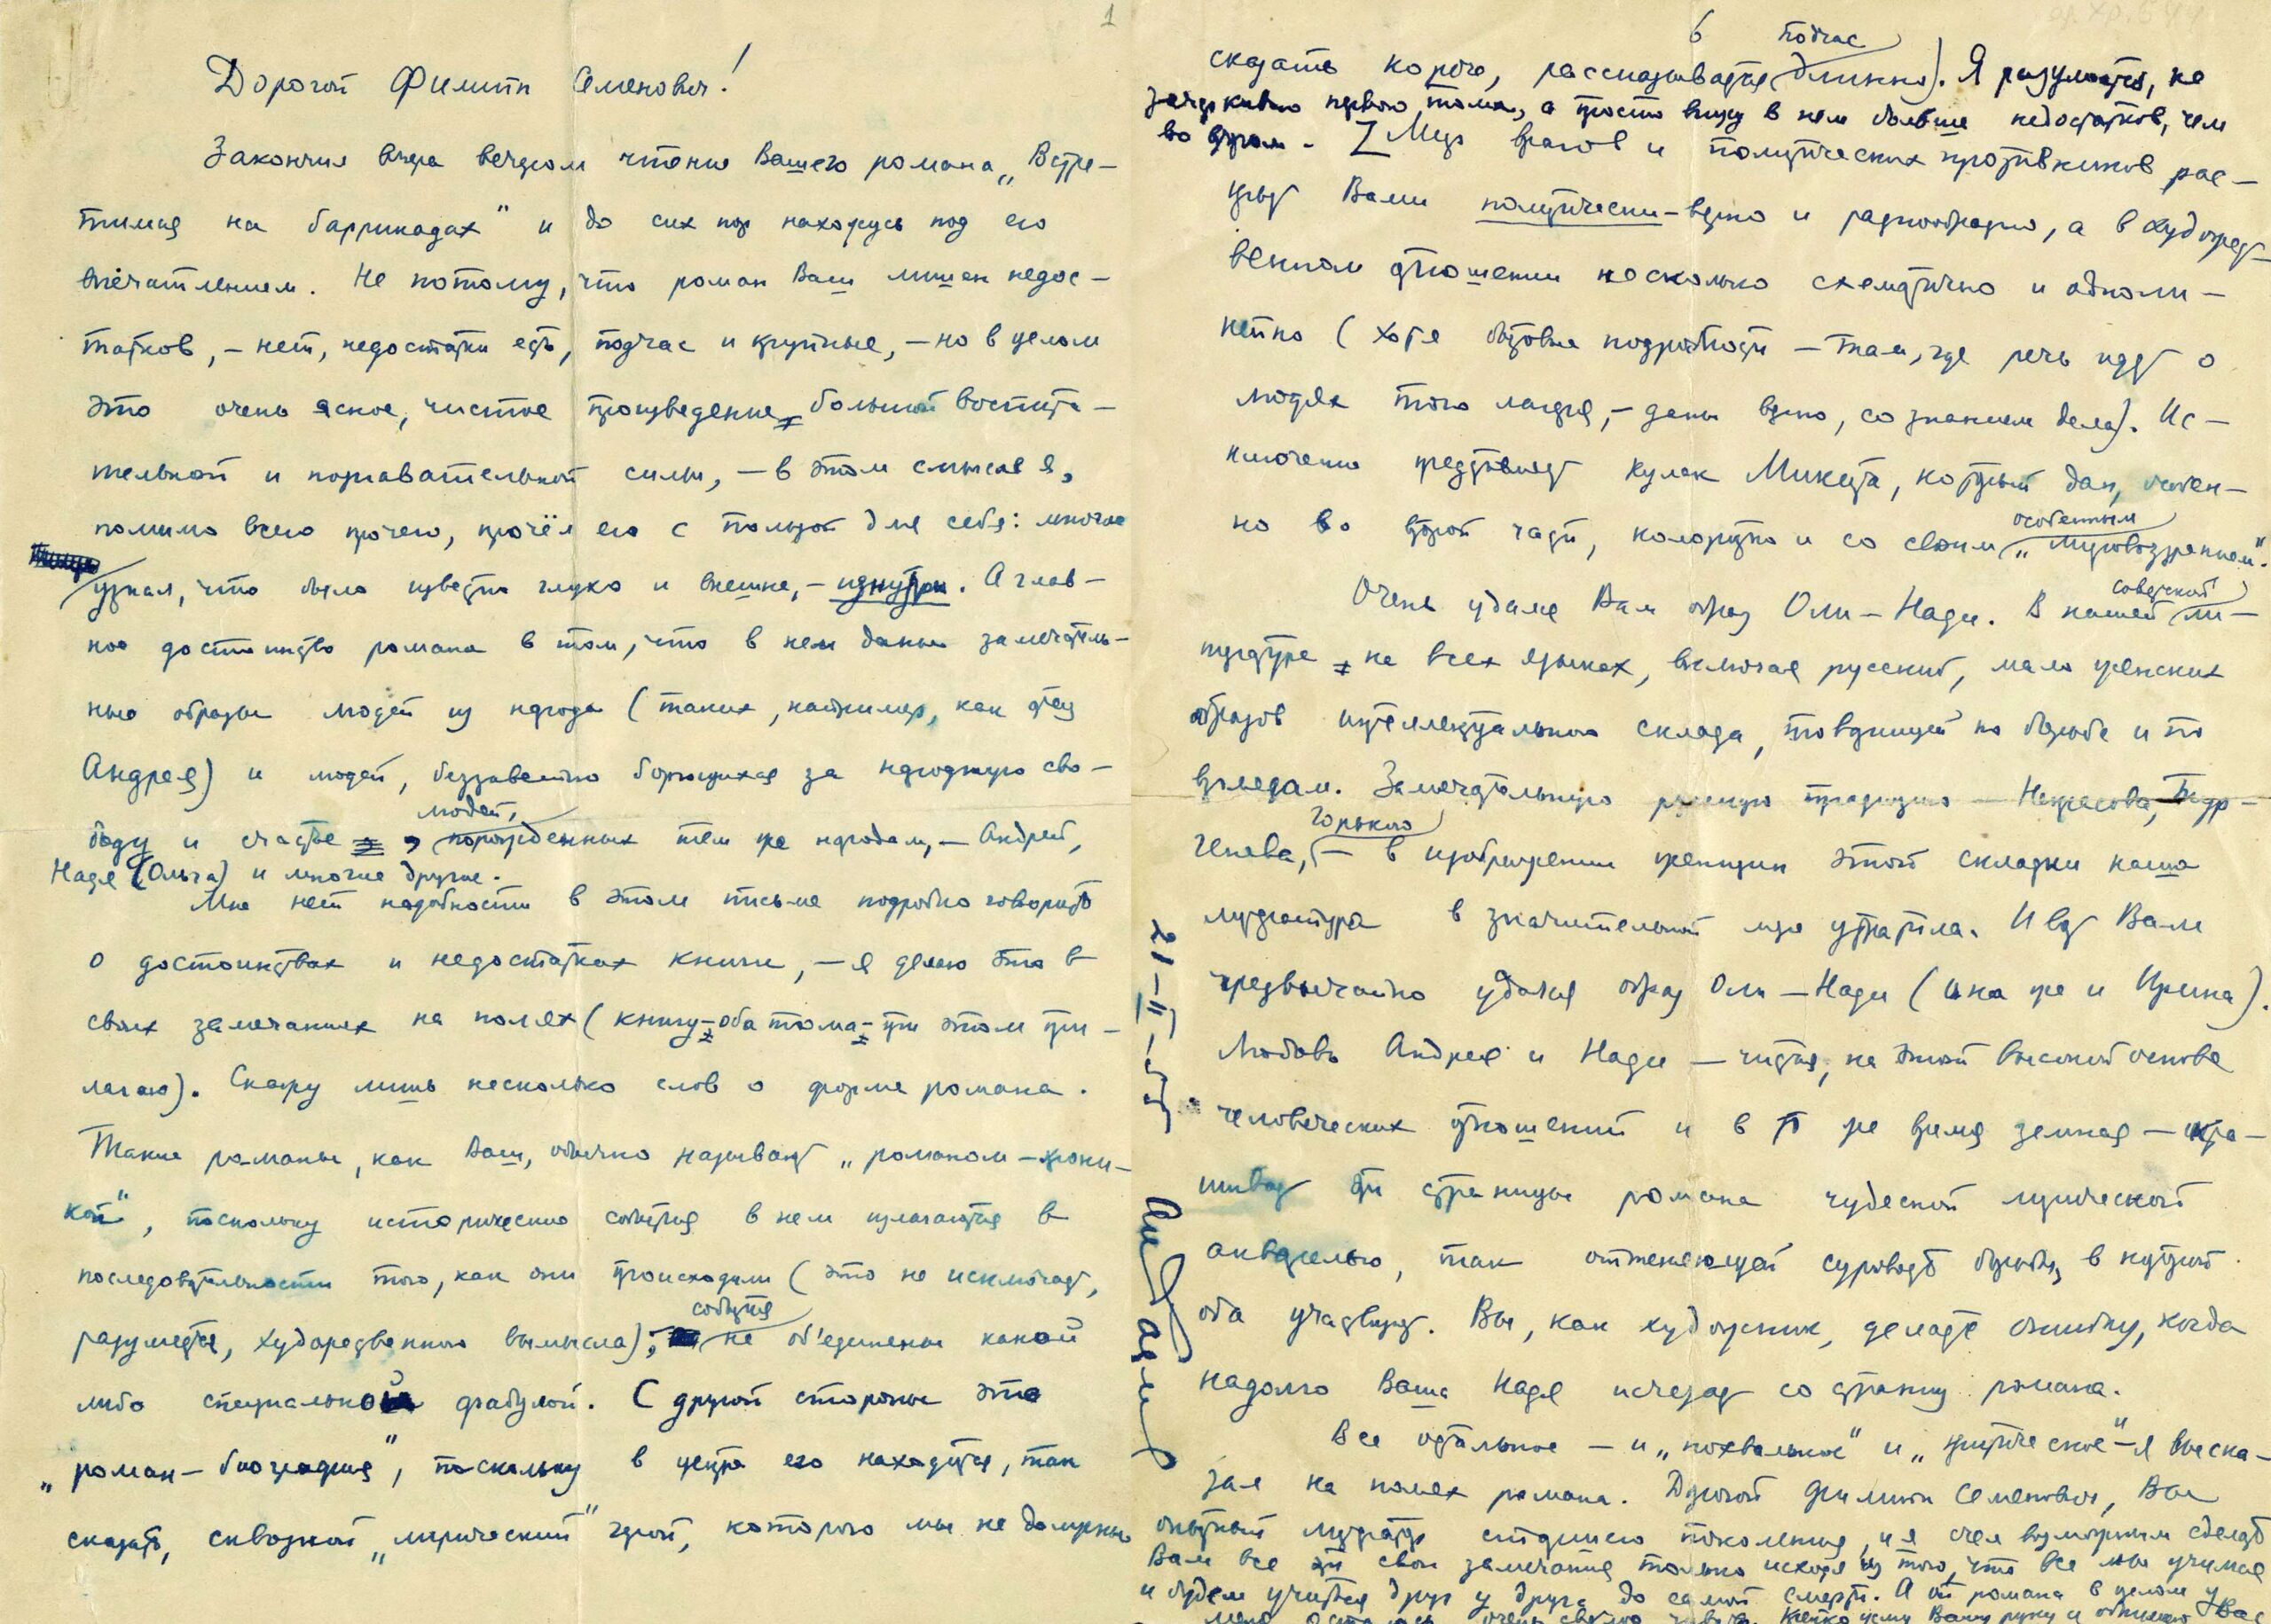 1
Дорогой Филипп Семенович!
Закончил вчера вечером чтение Вашего романа „Встре-
тимся на баррикадах" и до сих пор нахожусь под его
впечатлением. Не потому, что роман Ваш лишен недос-
татков, – нет, недостатки есть, подчас и крупные, – но в целом
это очень ясное, чистое произведение большой воспита-
тельной и познавательной силы, – в этом смысле я,
помимо всего прочего, прочёл его с пользой для себя: многое
узнал, что было известно глухо и внешне, – изнутри. А глав-
ное достоинство романа в том, что в нем даны замечатель-
ные образы людей из народа (таких, например, как отец
Андрея) и людей, беззаветно борющихся за народную сво-
людей,
боду и счастье, порожденных тем же народом, – Андрей,
Надя (Ольга) и многие другие.
Мне нет надобности в этом письме подробно говорить
о достоинствах и недостатках книги, – я делаю это в
своих замечаниях на полях (книгу – оба тома – при этом при-
лагаю). Скажу лишь несколько слов о форме романа.
Такие романы, как Ваш, обычно называют „романом-хрони-
кой", поскольку исторические события в нем излагаются в
последовательности того, как они происходили (это не исключает,
события
разумеется, художественного вымысла); не об'единены какой
либо специальной фабулой. С другой стороны это
„роман-биография", поскольку в центре его находится, так
сказать, сквозной „лирический" герой, которого мы не должны
6 подчас
сказать короче, рассказывается длинно). Я разумеется, не
зачеркиваю первого тома, а просто вижу в нем больше недостатков, чем
во втором. Z Мир врагов и политических противников рас-
крыт Вами политически-верно и разнообразно, а в художест-
венном отношении несколько схематично и одноли-
нейно (хотя бытовые подробности – там, где речь идет о
людях того лагеря, – даны верно, со знанием дела). Ис-
ключение представляет кулак Микита, который дан, особен-
особенным
но во второй части, колоритно и со своим „мировоззрением".
Очень удался Вам образ Оли-Нади. В нашей ли-
советской
тературе на всех языках, включая русский, мало женских
образов интеллектуального склада, товарищей по борьбе и по
взглядам. Замечательную русскую традицию – Некрасова, Тур-
Горького
генева, – в изображении женщин этой складки наша
литература в значительной мере утратила. И вот Вам
чрезвычайно удался образ Оли-Нади (она же и Ирина).
Любовь Андрея и Нади – чистая, на этой высокой основе
человеческих отношений и в то же время земная – окра-
шивает эти страницы романа чудесной лирической
акварелью, так оттеняющей суровость борьбы, в которой
оба участвуют. Вы, как художник, делаете ошибку, когда
надолго Ваша Надя исчезает со страниц романа.
Все остальное – и „похвальное" и „критическое" – я выска-
зал на полях романа. Дорогой Филипп Семенович, Вы
опытный литератор старшего поколения, и я счел возможным сделать
Вам все эти свои замечания только исходя из того, что все мы учимся
и будем учиться друг у друга до самой смерти. А от романа в целом у
меня осталось очень светлое чувство. Крепко жму Вашу руку и обнимаю Вас
21–II–
АФадеев